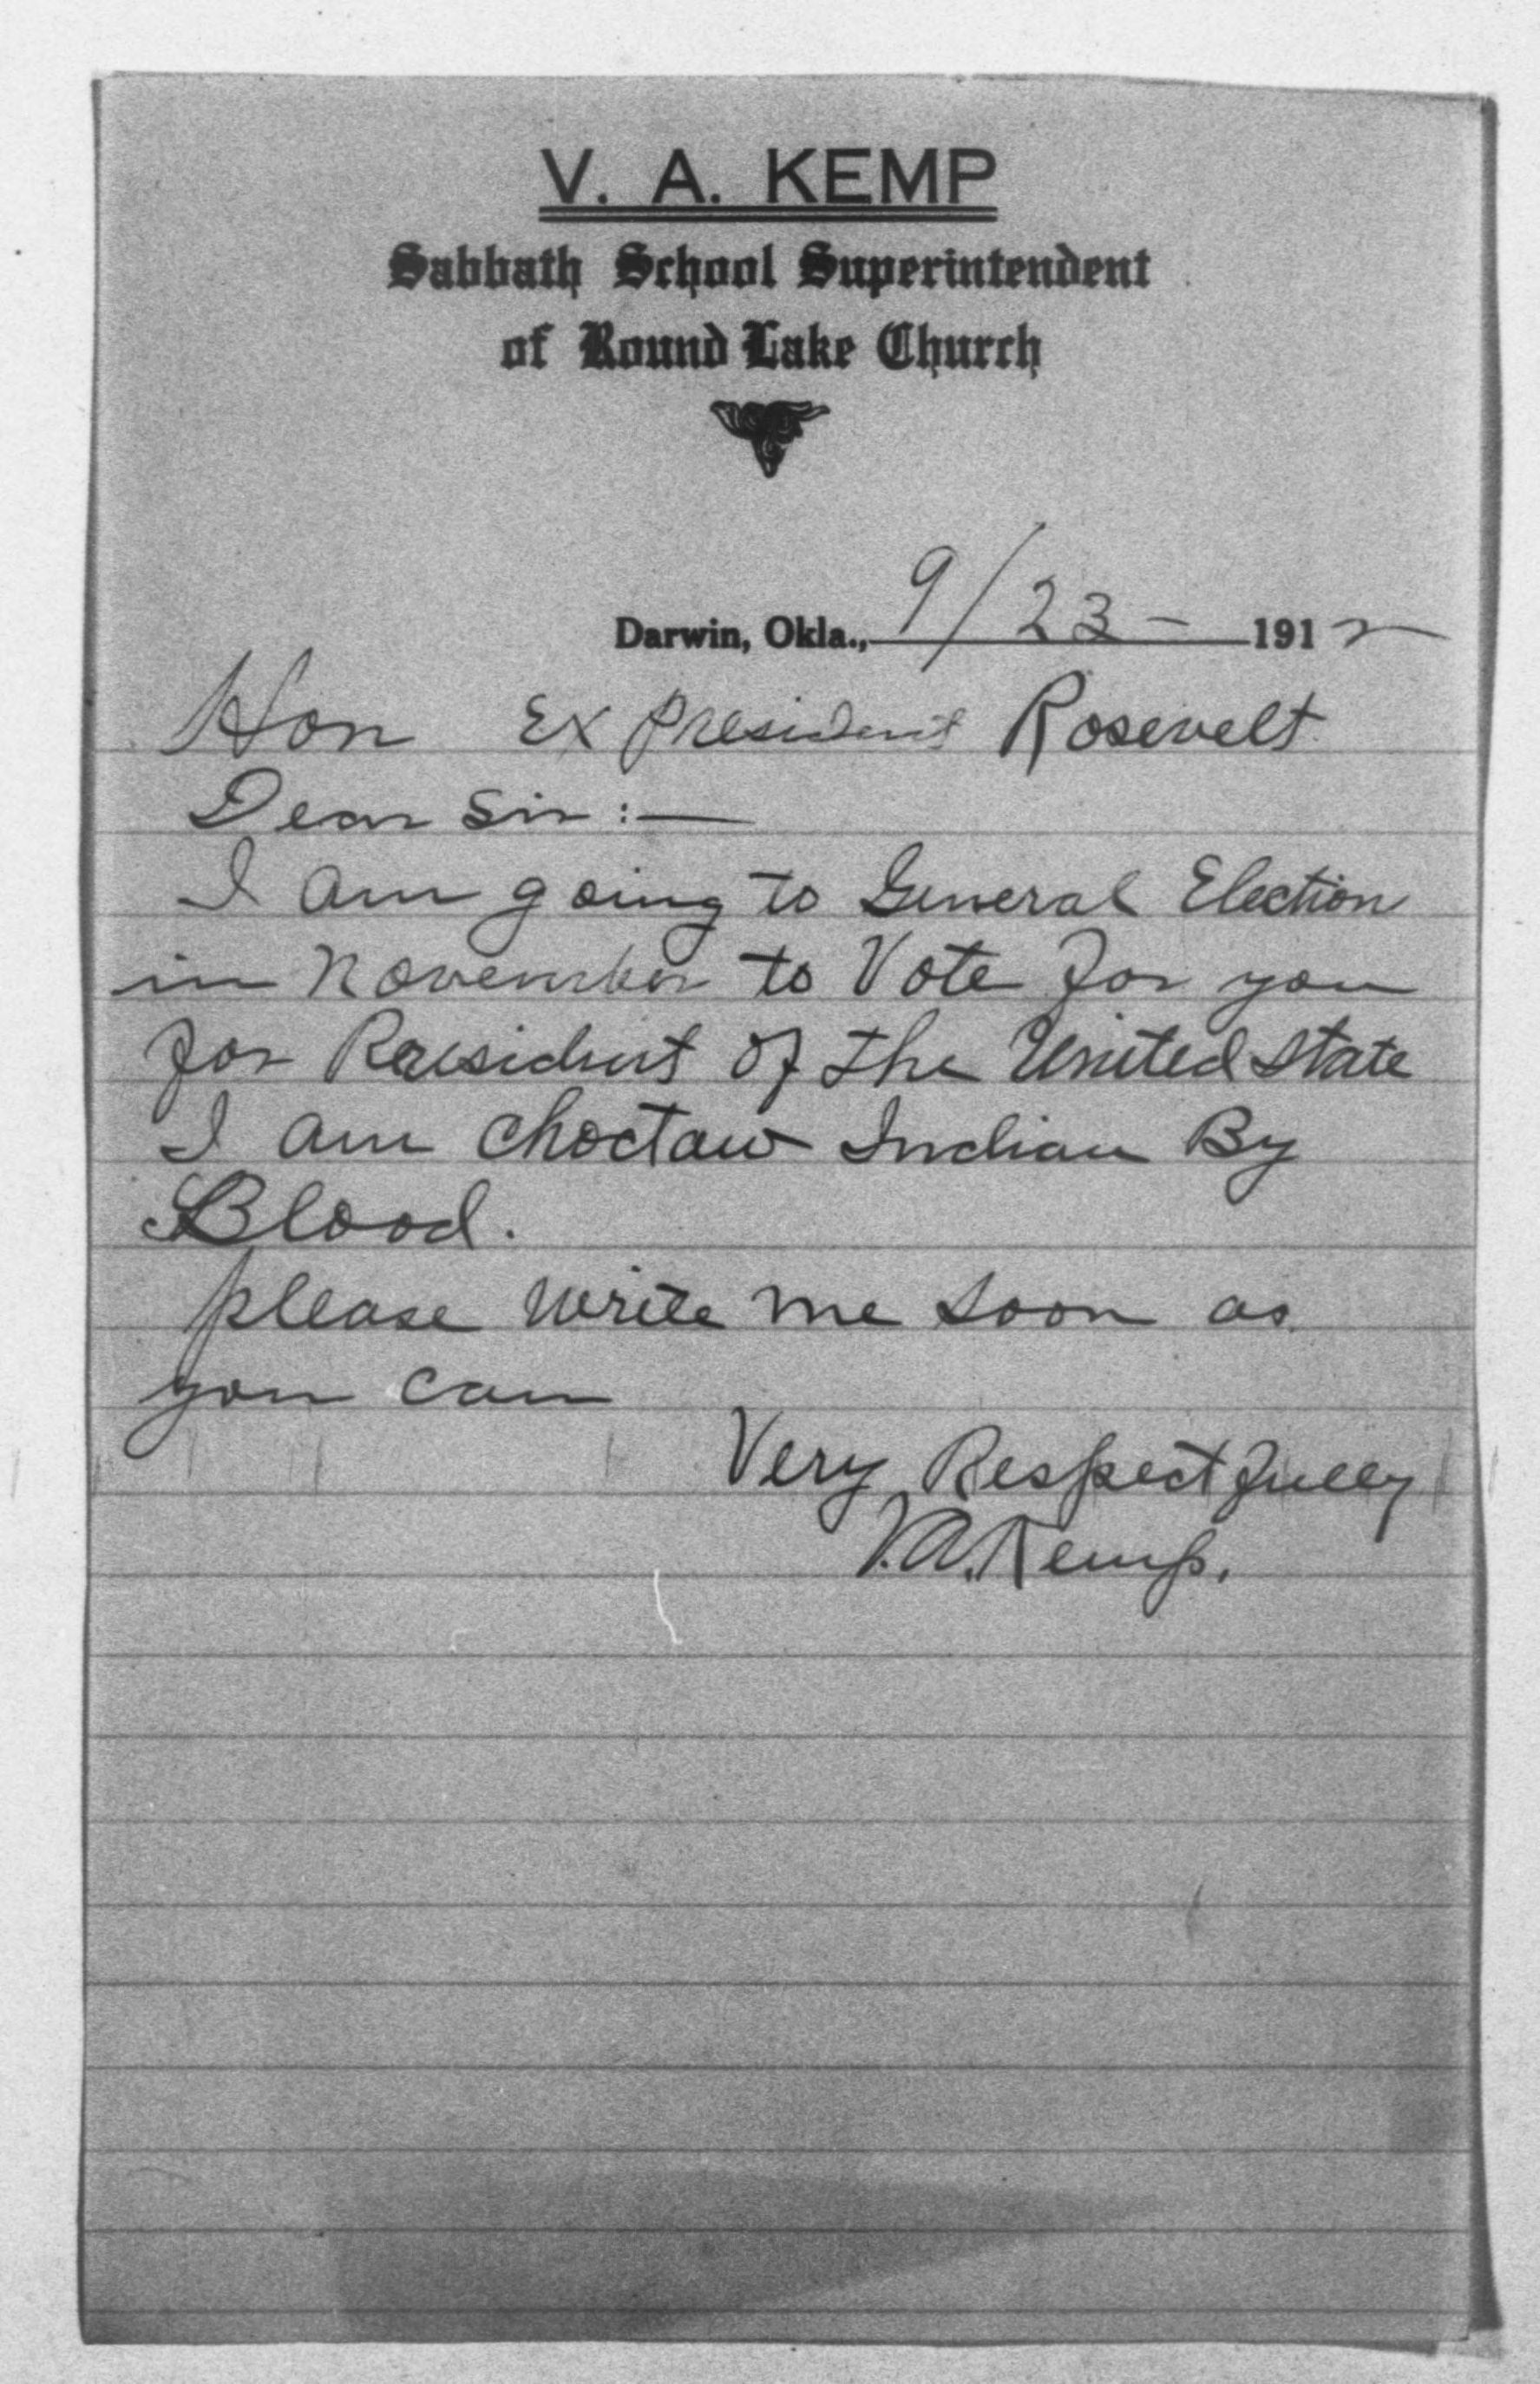 V. A. KEMP
Sabbath School Superintendent
of Round Lake Church
Darwin, Okla., 9/23- 1912
Hon Ex President Rosevelt
Dear Sir :—
I am going to General Election
in November to Vote for you
for President of the United State
I am Choctaw Indian By
Blood.
please write me soon as
you can
Very Respectfully
V.A. Kemp.